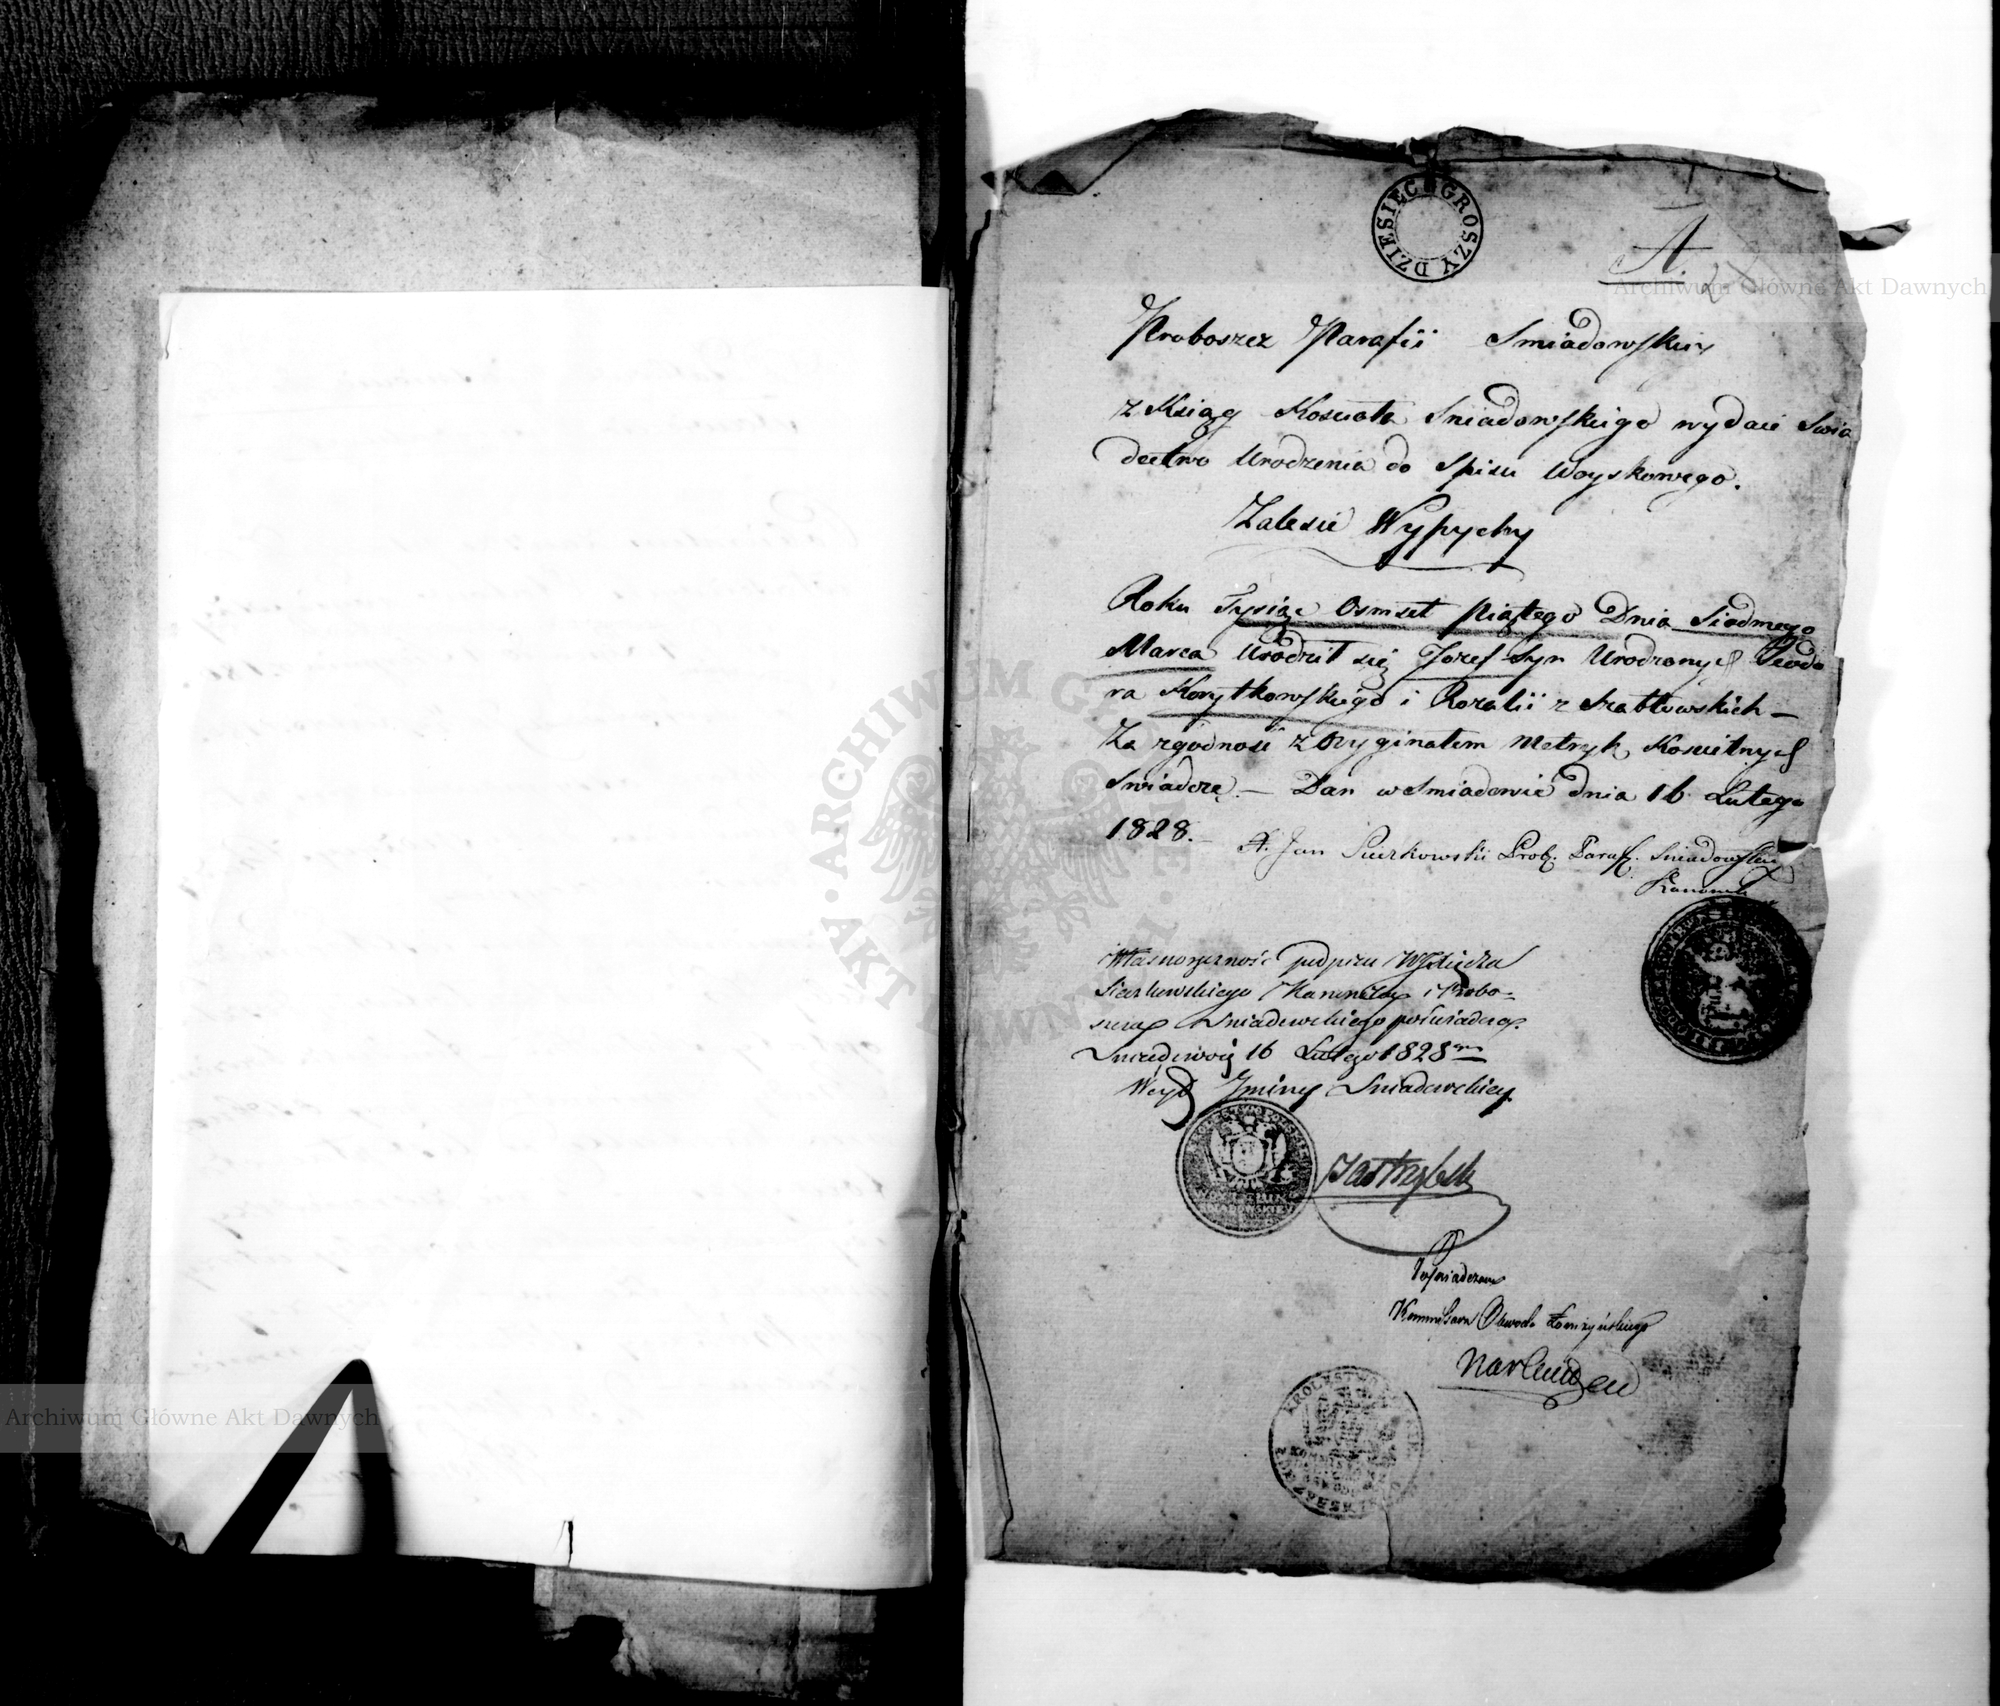 DZIESIĘC GROSZY
A.
2
Archiwum Główne Akt Dawnych
Proboszcz Parafii Sniadowskiey
z Ksiąg Kościoła Sniadowskiego wydaie Swia
dectwo Urodzenia do Spisu Woyskowego.
Zalesie Wypychy
Roku Tysiąc Osmset Piątego Dnia Siodmego
Marca Urodził się Jozef Syn Urodzonych Teodo
ra Korytkowskiego i Rozalii z Szabłowskich —
Za zgodność z Oryginałem Metryk Kościelnych
Swiadczę. — Dan w Sniadowie dnia 16 Lutego
1828. — X. Jan Sierkowski Prob. Paraf. Sniadowskiey
Kanonik
Własnoręczność podpisu W Xiędza
Sierkowskiego Kanonika i Probo=
szcza Sniadowskiego poświadcza.
16 Lutego 1828
Woyt Gminy Sniadowskiey
Jastrzębsk
Poświadczam
Kommissarz Obwodu Łomżyńskiego
KROLESTWO
ARCHIWUM GŁÓWNE AKT DAWNYCH
Archiwum Główne Akt Dawnych